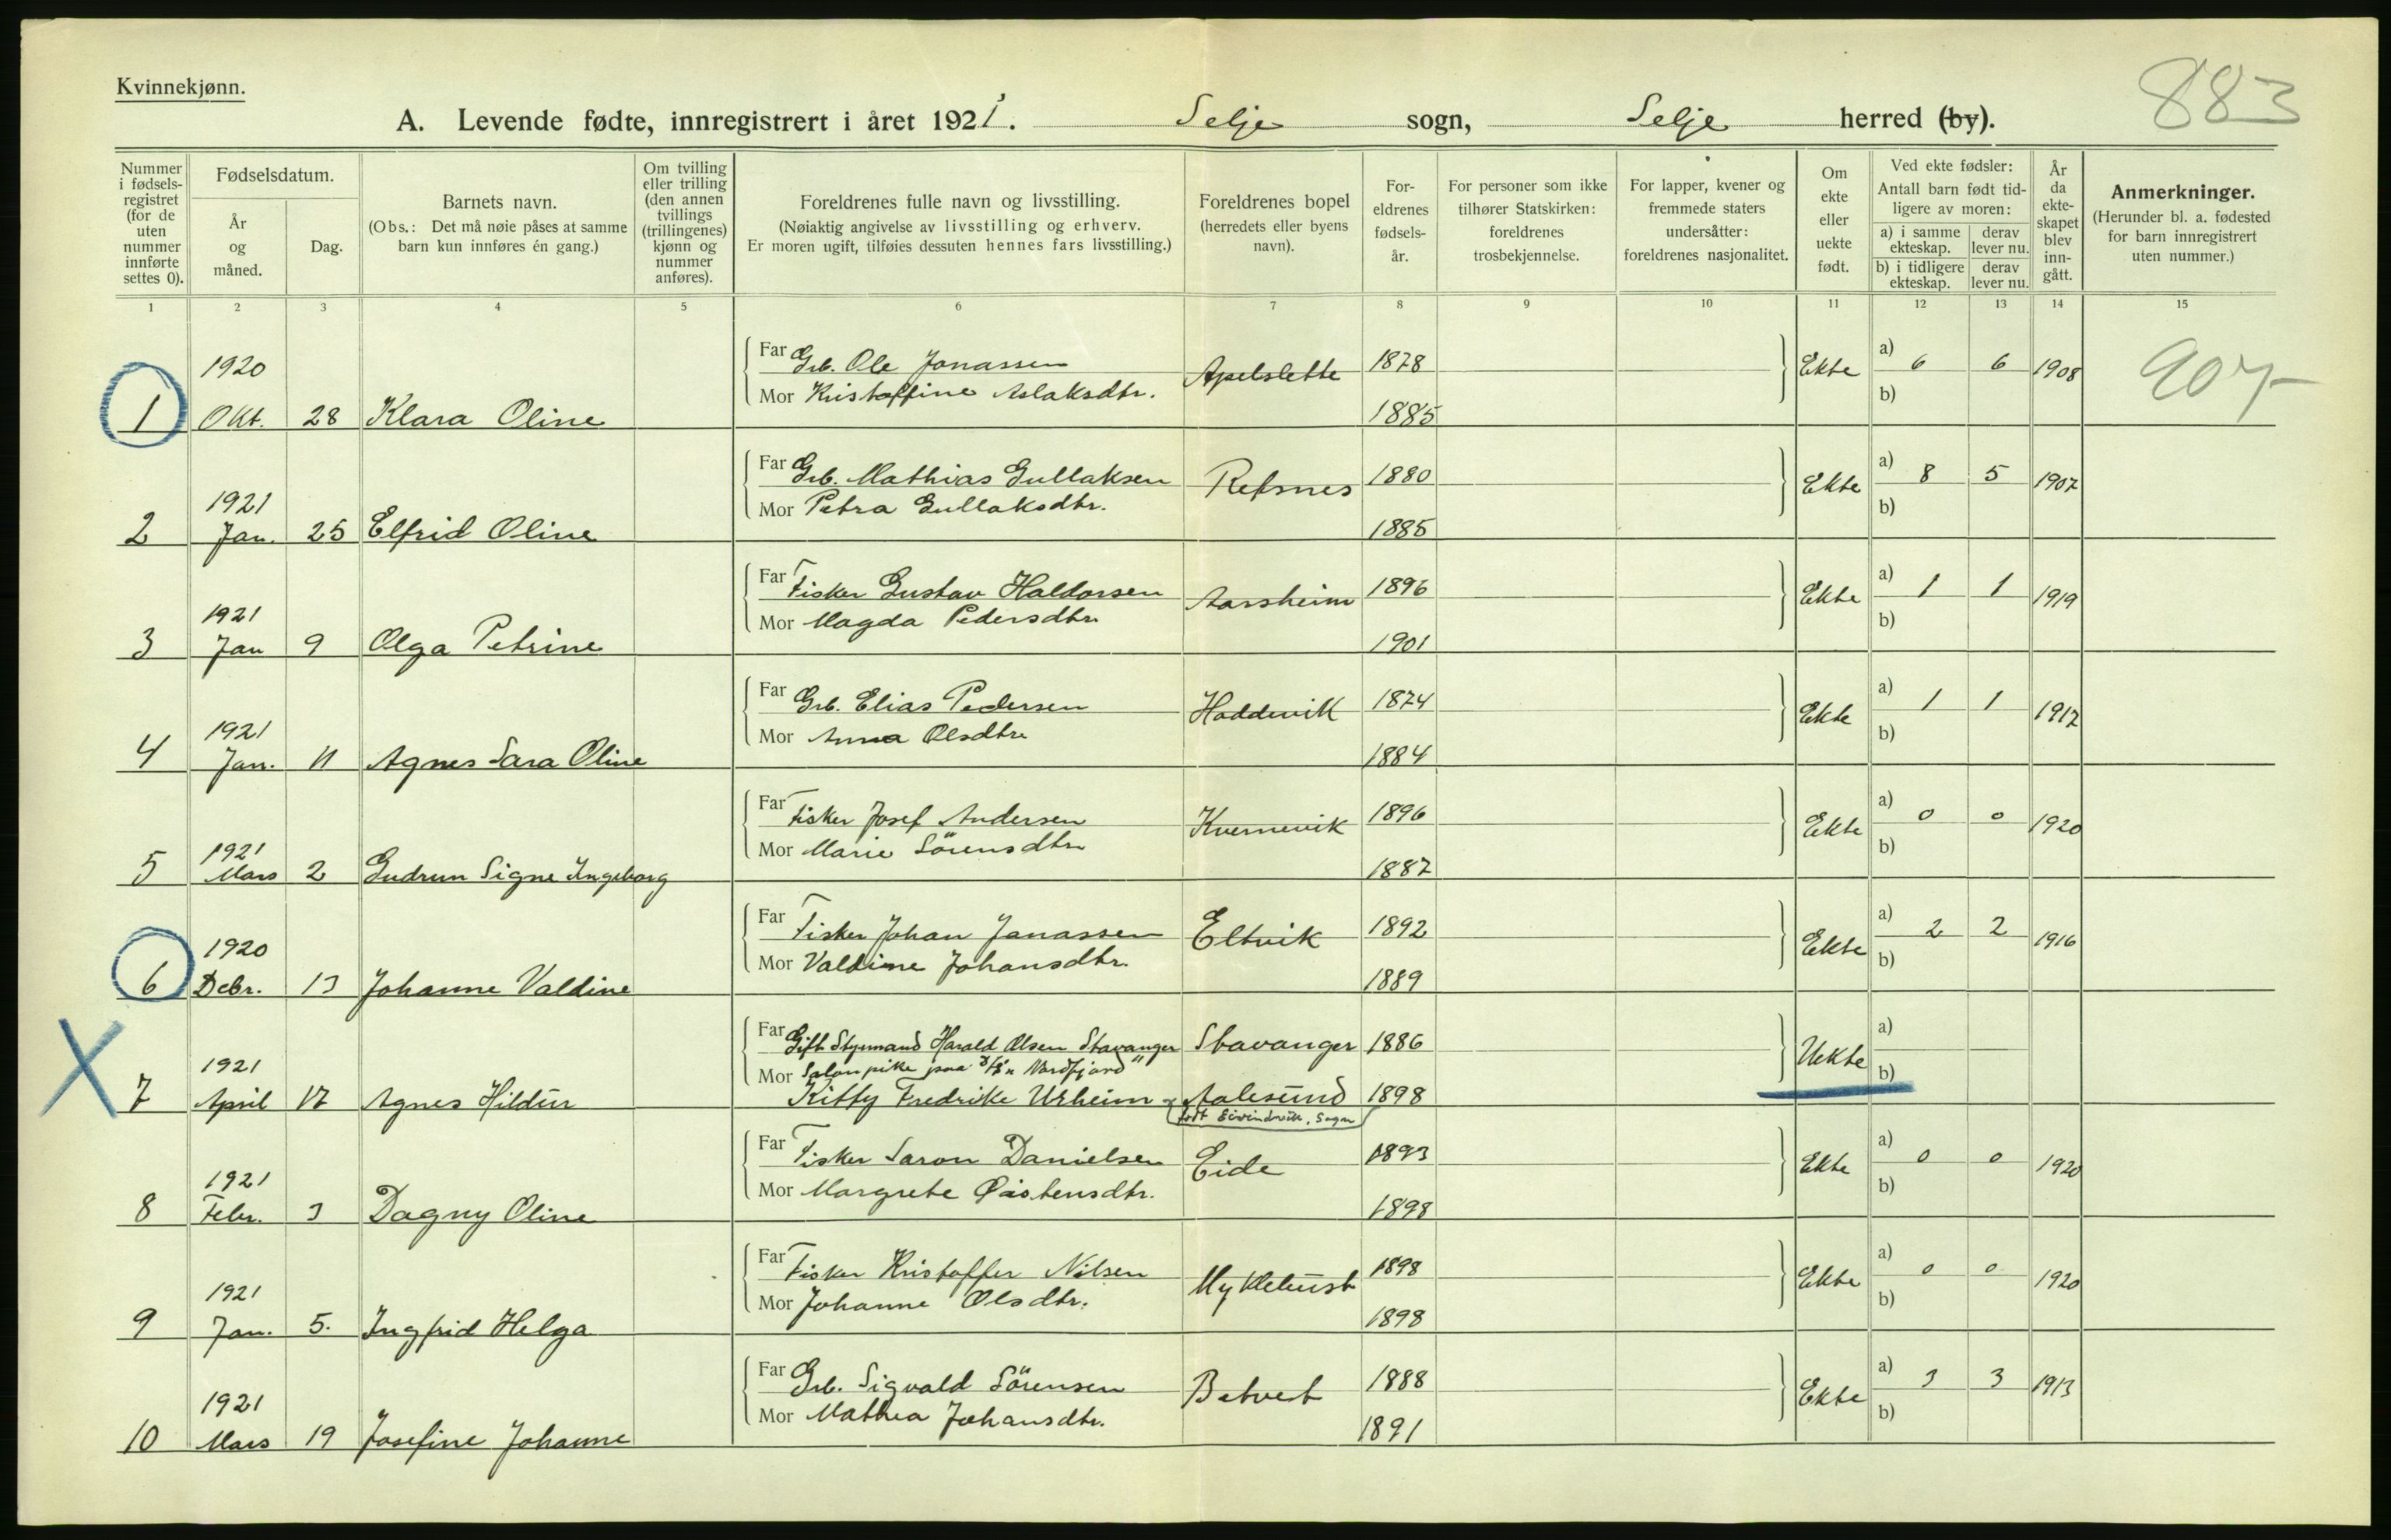 Kvinnekjønn.
883
A. Levende fødte, innregistrert i året 1921. Selje sogn, Selje herred (by).
Nummer i fødsels-registret (for de uten nummer innførte settes 0).
Fødselsdatum.
År og måned.
Dag.
Barnets navn.
(Obs.: Det må nøie påses at samme barn kun innføres én gang.)
Om tvilling eller trilling (den annen tvillings (trillingenes) kjønn og nummer anføres).
Foreldrenes fulle navn og livsstilling.
(Nøiaktig angivelse av livsstilling og erhverv.
Er moren ugift, tilføies dessuten hennes fars livsstilling.)
Foreldrenes bopel (herredets eller byens navn).
For-eldrenes fødsels-år.
For personer som ikke tilhører Statskirken: foreldrenes trosbekjennelse.
For lapper, kvener og fremmede staters undersåtter: foreldrenes nasjonalitet.
Om ekte eller uekte født.
Ved ekte fødsler:
Antall barn født tid-ligere av moren:
a) i samme ekteskap. derav lever nu.
b) i tidligere ekteskap. derav lever nu.
År da ekte-skapet blev inn-gått.
Anmerkninger.
(Herunder bl. a. fødested for barn innregistrert uten nummer.)
1 2 3 4 5 6 7 8 9 10 11 12 13 14 15
1920 Far Grb. Ole Jonassen Apelslette 1878 Ekte a) 6 6 1908 907
1 Okt. 28 Klara Oline Mor Kristoffine Aslaksdtr. 1885 b)
1921 Far Grb. Mathias Gullaksen Refsnes 1880 Ekte a) 8 5 1907
2 Jan. 25 Elfrid Oline Mor Petra Gullaksdtr. 1885 b)
1921 Far Fisker Gustav Haldorsen Aarsheim 1896 Ekte a) 1 1 1919
3 Jan 9 Olga Petrine Mor Magda Pedersdtr. 1901 b)
1921 Far Grb. Elias Pedersen Hoddevik 1874 Ekte a) 1 1 1917
4 Jan. 11 Agnes Sara Oline Mor Anna Olsdtr. 1884 b)
1921 Far Fisker Josef Andersen Kvernevik 1896 Ekte a) 0 0 1920
5 Mars 2 Gudrun Signe Ingeborg Mor Marie Sörensdtr. 1887 b)
1920 Far Fisker Johan Janassen Eltvik 1892 Ekte a) 2 2 1916
6 Debr. 13 Johanne Valdine Mor Valdine Johansdtr. 1889 b)
X 1921 Far Gift Styrmand Harald Olsen Stavanger Stavanger 1886 Uekte a)
Mor Salonpike paa D/S "Nordfjord"
7 April 17 Agnes Hildur Kitty Fredrikke Urheim Aalesund 1898 b)
født Eivindvik, Sogn
1921 Far Fisker Saron Danielsen Eide 1893 Ekte a) 0 0 1920
8 Febr. 3 Dagny Oline Mor Margrete Øistensdtr. 1898 b)
1921 Far Fisker Kristoffer Nilsen Myklebust 1898 Ekte a) 0 0 1920
9 Jan. 5. Ingfrid Helga Mor Johanne Olsdtr. 1898 b)
1921 Far Grb. Sigvald Sörensen Berstad 1888 Ekte a) 3 3 1913
10 Mars 19 Josefine Johanne Mor Mathea Johansdtr. 1891 b)